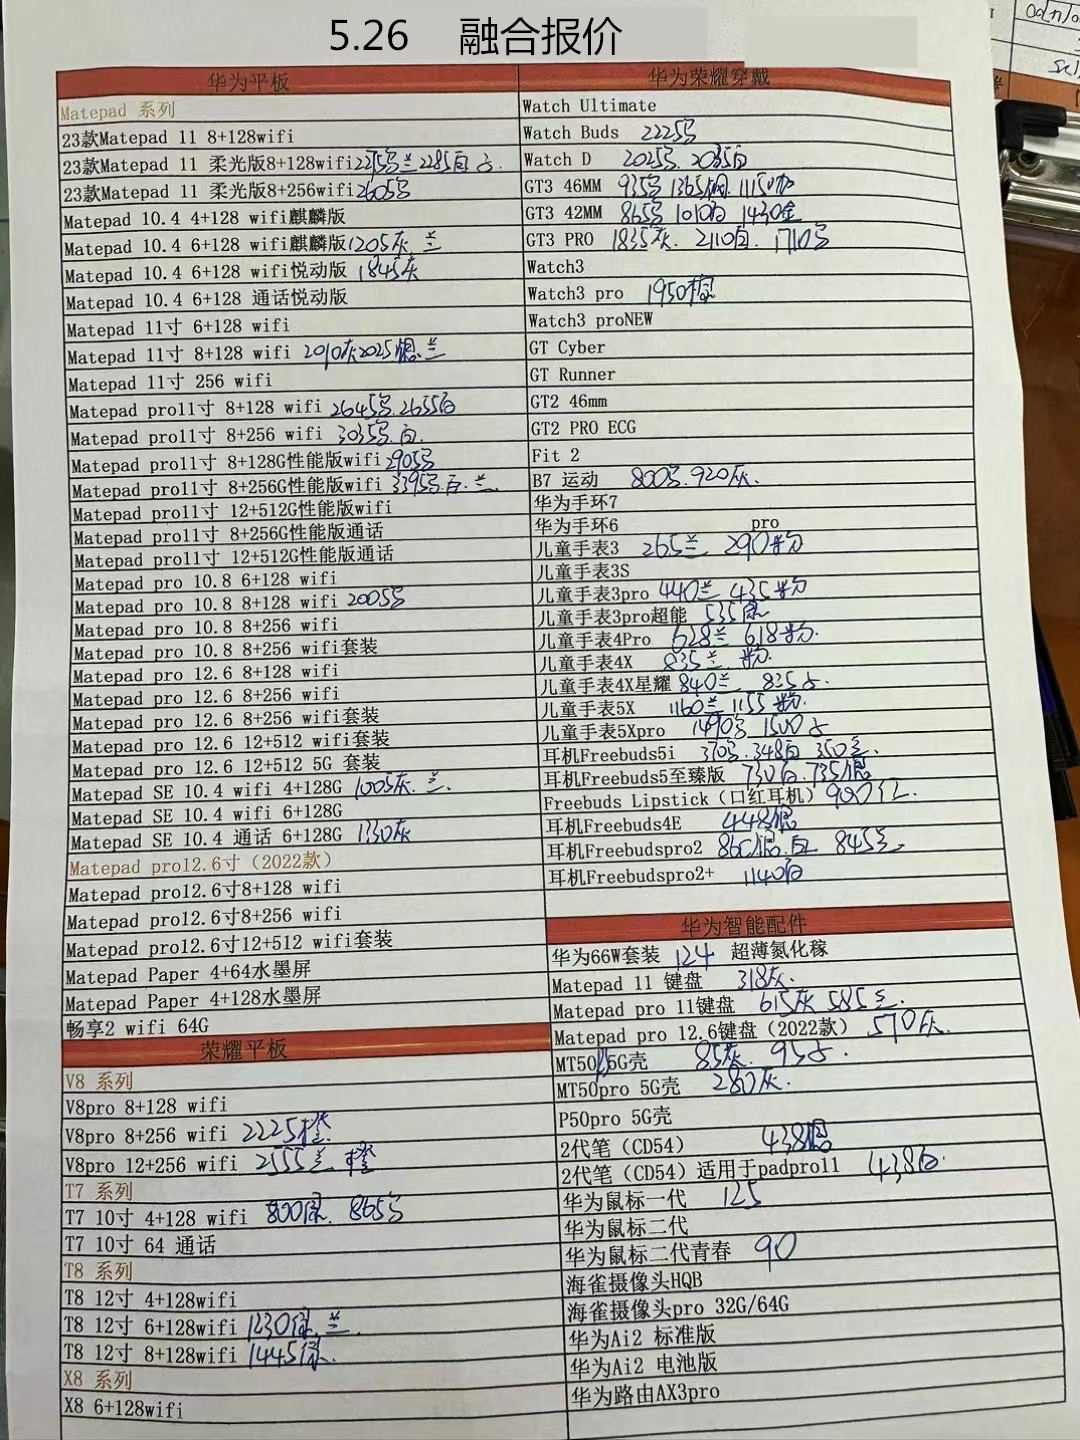 5.26 融合报价
华为平板
Matepad 系列
23款Matepad 11 8+128wifi
23款Matepad 11 柔光版8+128wifi 2275 兰 2285白
23款Matepad 11 柔光版8+256wifi 2605
Matepad 10.4 4+128 wifi麒麟版
Matepad 10.4 6+128 wifi麒麟版 1205灰 兰
Matepad 10.4 6+128 wifi悦动版 1845灰
Matepad 10.4 6+128 通话悦动版
Matepad 11寸 6+128 wifi
Matepad 11寸 8+128 wifi 2010灰 2025银.兰
Matepad 11寸 256 wifi
Matepad pro11寸 8+128 wifi 2645 2635白
Matepad pro11寸 8+256 wifi 3035 白.
Matepad pro11寸 8+128G性能版wifi 2905
Matepad pro11寸 8+256G性能版wifi 3395 白.兰.
Matepad pro11寸 12+512G性能版wifi
Matepad pro11寸 8+256G性能版通话
Matepad pro11寸 12+512G性能版通话
Matepad pro 10.8 6+128 wifi
Matepad pro 10.8 8+128 wifi 2005
Matepad pro 10.8 8+256 wifi
Matepad pro 10.8 8+256 wifi套装
Matepad pro 12.6 8+128 wifi
Matepad pro 12.6 8+256 wifi
Matepad pro 12.6 8+256 wifi套装
Matepad pro 12.6 12+512 wifi套装
Matepad pro 12.6 12+512 5G 套装
Matepad SE 10.4 wifi 4+128G 1005灰.兰.
Matepad SE 10.4 wifi 6+128G
Matepad SE 10.4 通话 6+128G 1130灰
Matepad pro12.6寸（2022款）
Matepad pro12.6寸8+128 wifi
Matepad pro12.6寸8+256 wifi
Matepad pro12.6寸12+512 wifi套装
Matepad Paper 4+64水墨屏
Matepad Paper 4+128水墨屏
畅享2 wifi 64G
荣耀平板
V8 系列
V8pro 8+128 wifi
V8pro 8+256 wifi 2225橙.
V8pro 12+256 wifi 2555兰.橙
T7 系列
T7 10寸 4+128 wifi 800 865
T7 10寸 64 通话
T8 系列
T8 12寸 4+128wifi
T8 12寸 6+128wifi 1230 兰.
T8 12寸 8+128wifi 1445
X8 系列
X8 6+128wifi
华为荣耀穿戴
Watch Ultimate
Watch Buds 2225
Watch D 2025 2035白
GT3 46MM 935 1365钢. 1115
GT3 42MM 865 1010白 1430金
GT3 PRO 1835灰. 2110白. 1710
Watch3
Watch3 pro 1950棕
Watch3 proNEW
GT Cyber
GT Runner
GT2 46mm
GT2 PRO ECG
Fit 2
B7 运动 800 920灰.
华为手环7
华为手环6 pro
儿童手表3 265兰 290粉
儿童手表3S
儿童手表3pro 440兰 435粉
儿童手表3pro超能 535
儿童手表4Pro 628兰 618粉.
儿童手表4X 835兰.粉.
儿童手表4X星耀 840兰 835
儿童手表5X 1160兰 1155粉.
儿童手表5Xpro 1490 1500
耳机Freebuds5i 370 348白 350兰.
耳机Freebuds5至臻版 730白.735银
Freebuds Lipstick（口红耳机）900红.
耳机Freebuds4E 448银
耳机Freebudspro2 865银.白 845兰
耳机Freebudspro2+ 1140白
华为智能配件
华为66W套装 124 超薄氮化稼
Matepad 11 键盘 318灰.
Matepad pro 11键盘 615灰 585兰.
Matepad pro 12.6键盘（2022款） 570灰.
MT50 5G壳 85灰. 95
MT50pro 5G壳 280灰.
P50pro 5G壳
2代笔（CD54） 438银
2代笔（CD54）适用于padpro11 438白.
华为鼠标一代 125
华为鼠标二代
华为鼠标二代青春 90
海雀摄像头HQB
海雀摄像头pro 32G/64G
华为Ai2 标准版
华为Ai2 电池版
华为路由AX3pro